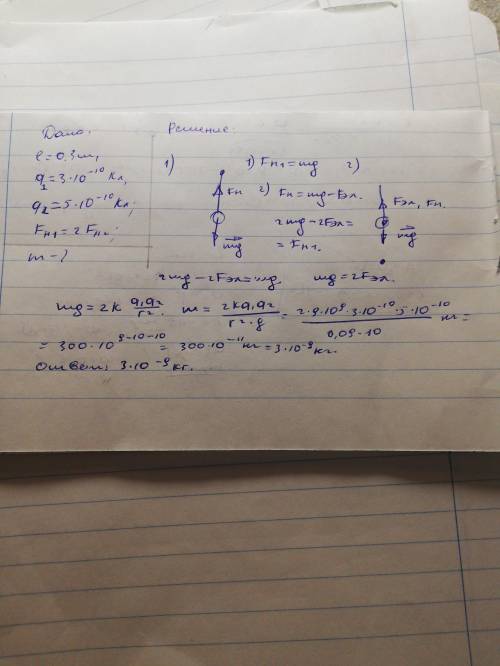 Дано: Решение:
l = 0,3 м,
q₁ = 3·10⁻¹⁰ Кл,
q₂ = 5·10⁻¹⁰ Кл,
Fн₁ = 2Fн₂;
m - ?
1) Fн mg
1) Fн₁ = mg 2)
2) Fн = mg - Fэл.
2mg - 2Fэл =
= Fн₁.
Fэл, Fн. mg
2mg - 2Fэл = mg. mg = 2Fэл.
mg = 2k q₁q₂/r². m = 2kq₁q₂/r²·g = 2·9·10⁹·3·10⁻¹⁰·5·10⁻¹⁰/0,09·10 кг =
= 300·10⁹⁻¹⁰⁻¹⁰ = 300·10⁻¹¹ кг = 3·10⁻⁹ кг.
Ответ: 3·10⁻⁹ кг.